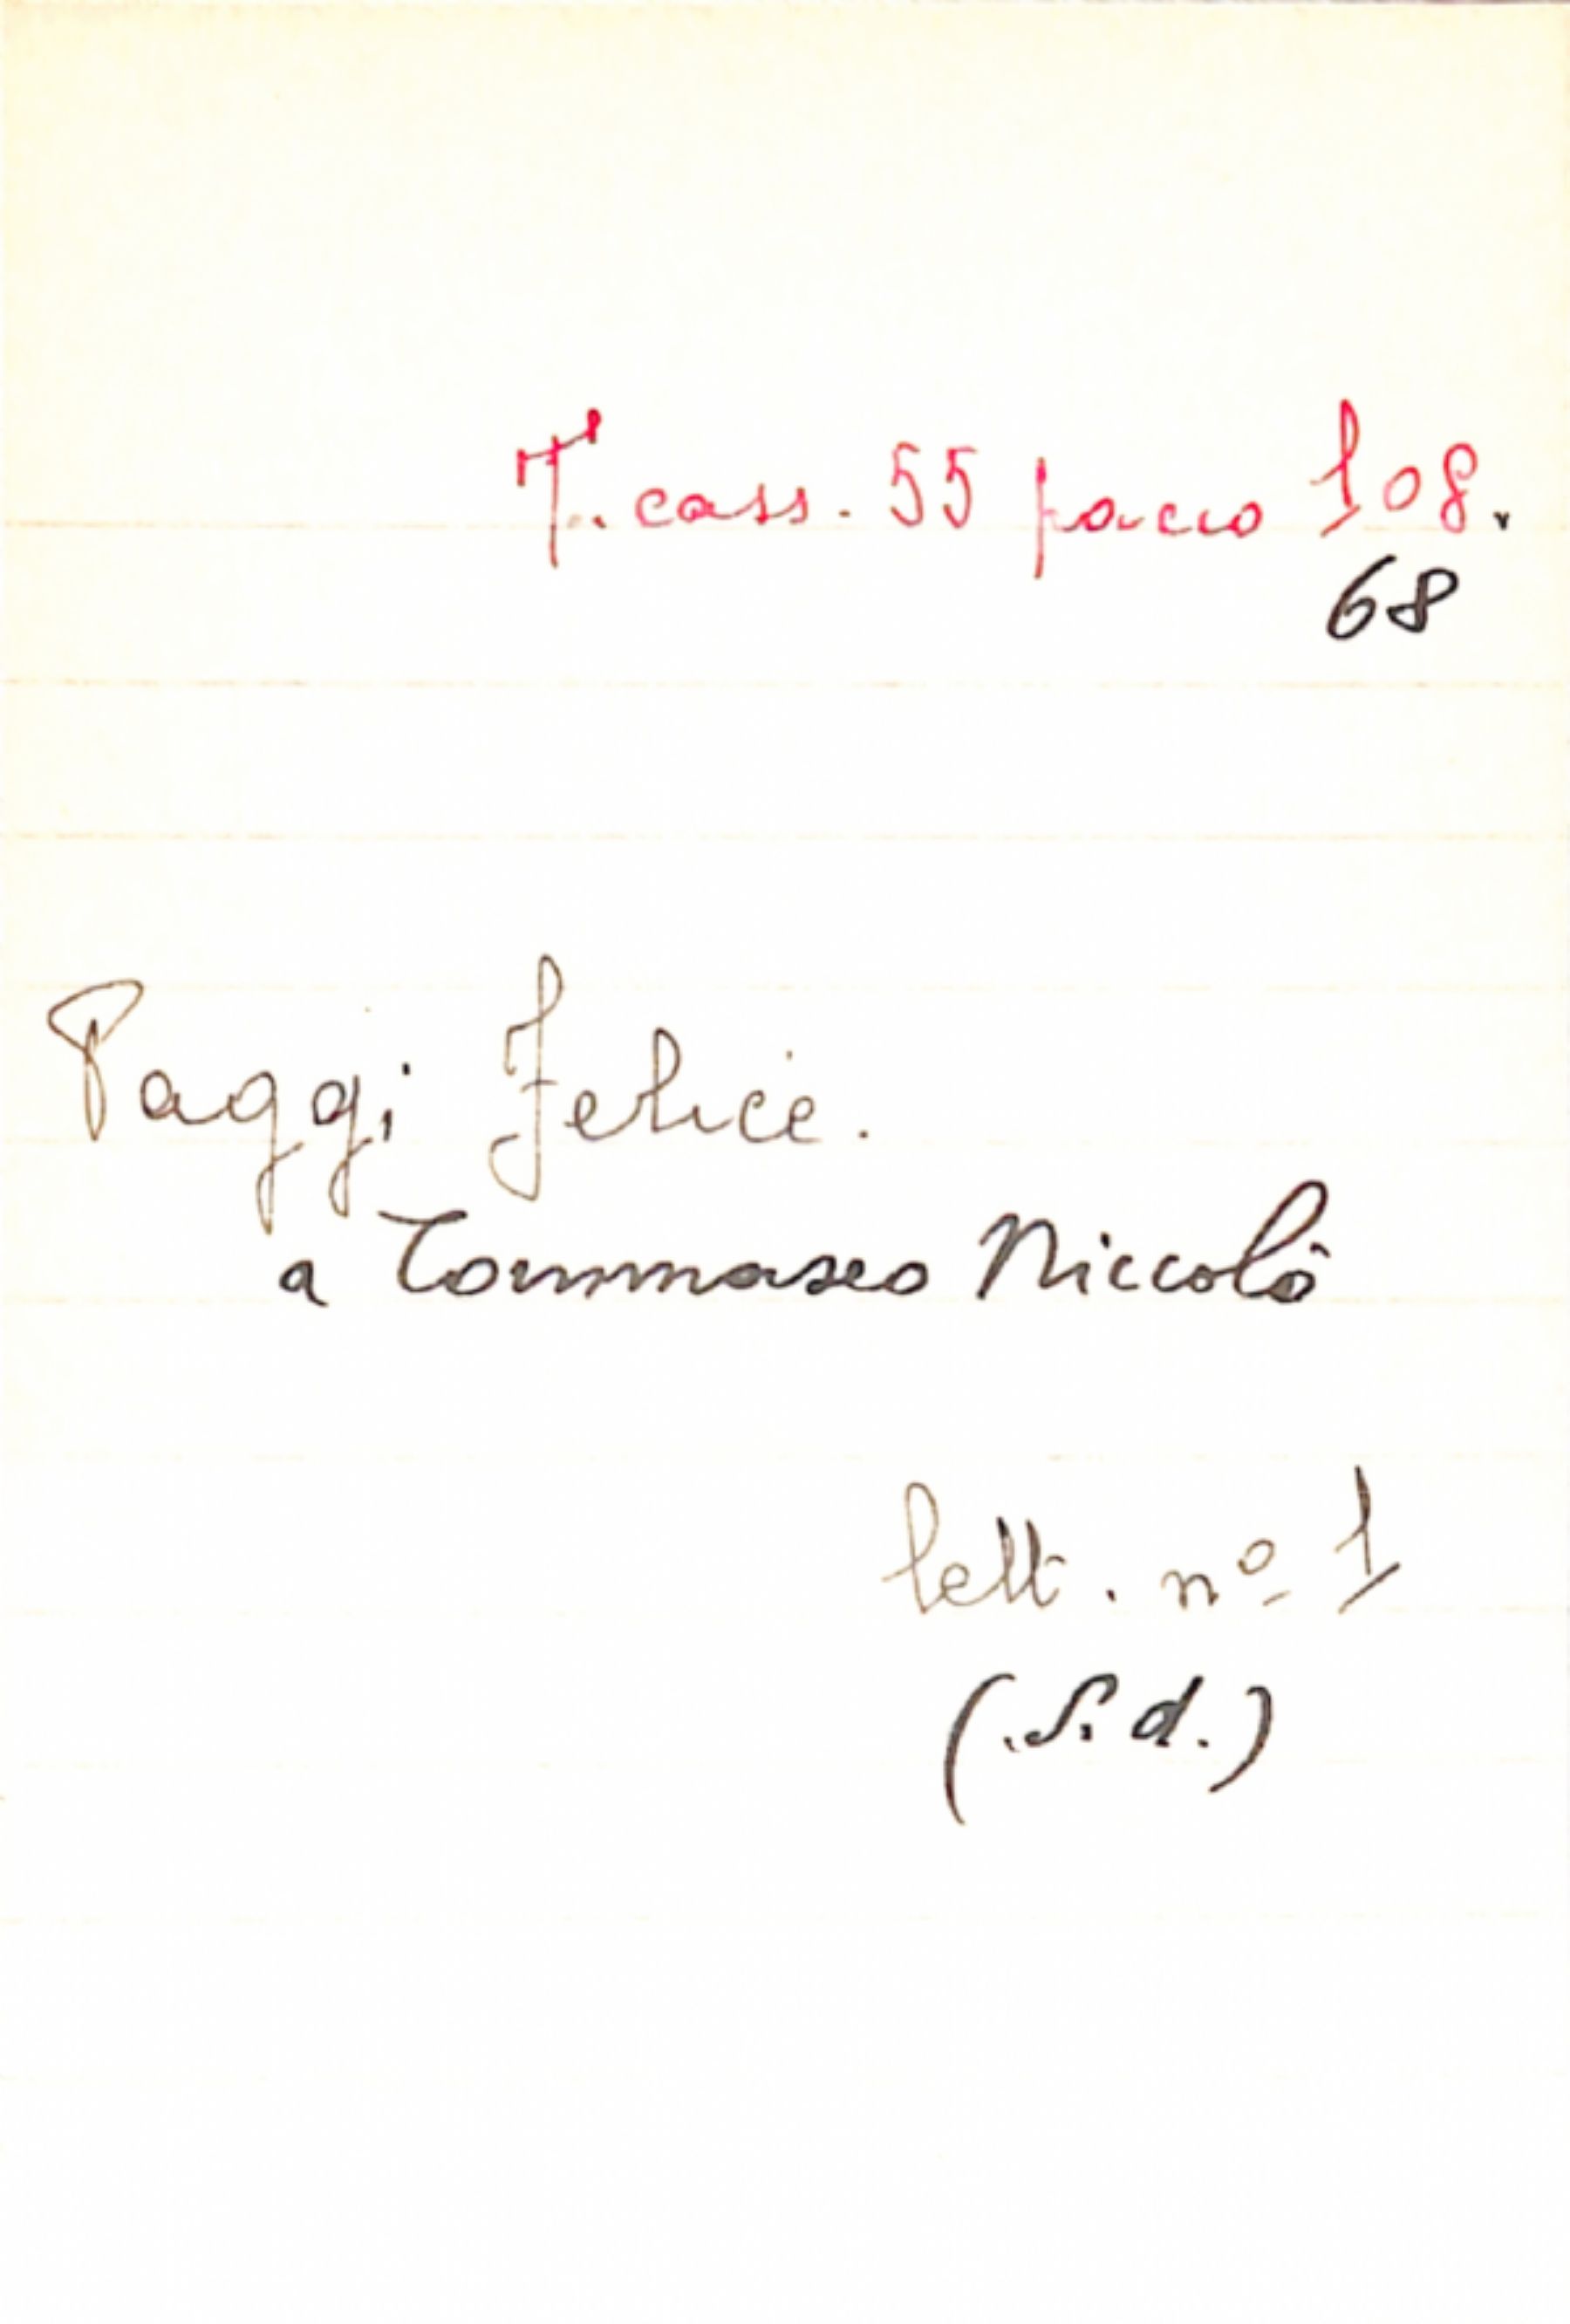 T. cass. 55 pacco 108.
68
Paggi Felice.
a Tommaseo Niccolò
lett. nº 1
(S. d.)